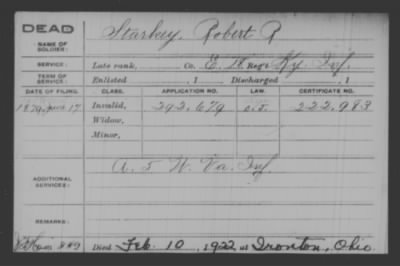 DEAD
NAME OF SOLDIER: Starkey, Robert R
SERVICE: Late rank, Co. E, Reg't Ky Inf.
TERM OF SERVICE: Enlisted , 1 Discharged , 1
DATE OF FILING. CLASS. APPLICATION NO. LAW. CERTIFICATE NO.
1879, June 17 Invalid, 292,679 222,983
Widow,
Minor,
ADDITIONAL SERVICES: A. 5 W. Va. Inf.
REMARKS:
Died Feb. 10, 1922 at Ironton, Ohio.